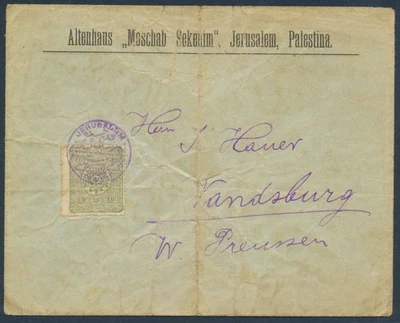 Altenhaus „Moschab Sekenim“, Jerusalem, Palestina.
JERUSALEM
Herrn J. Hauer
Vandsburg
W Preussen